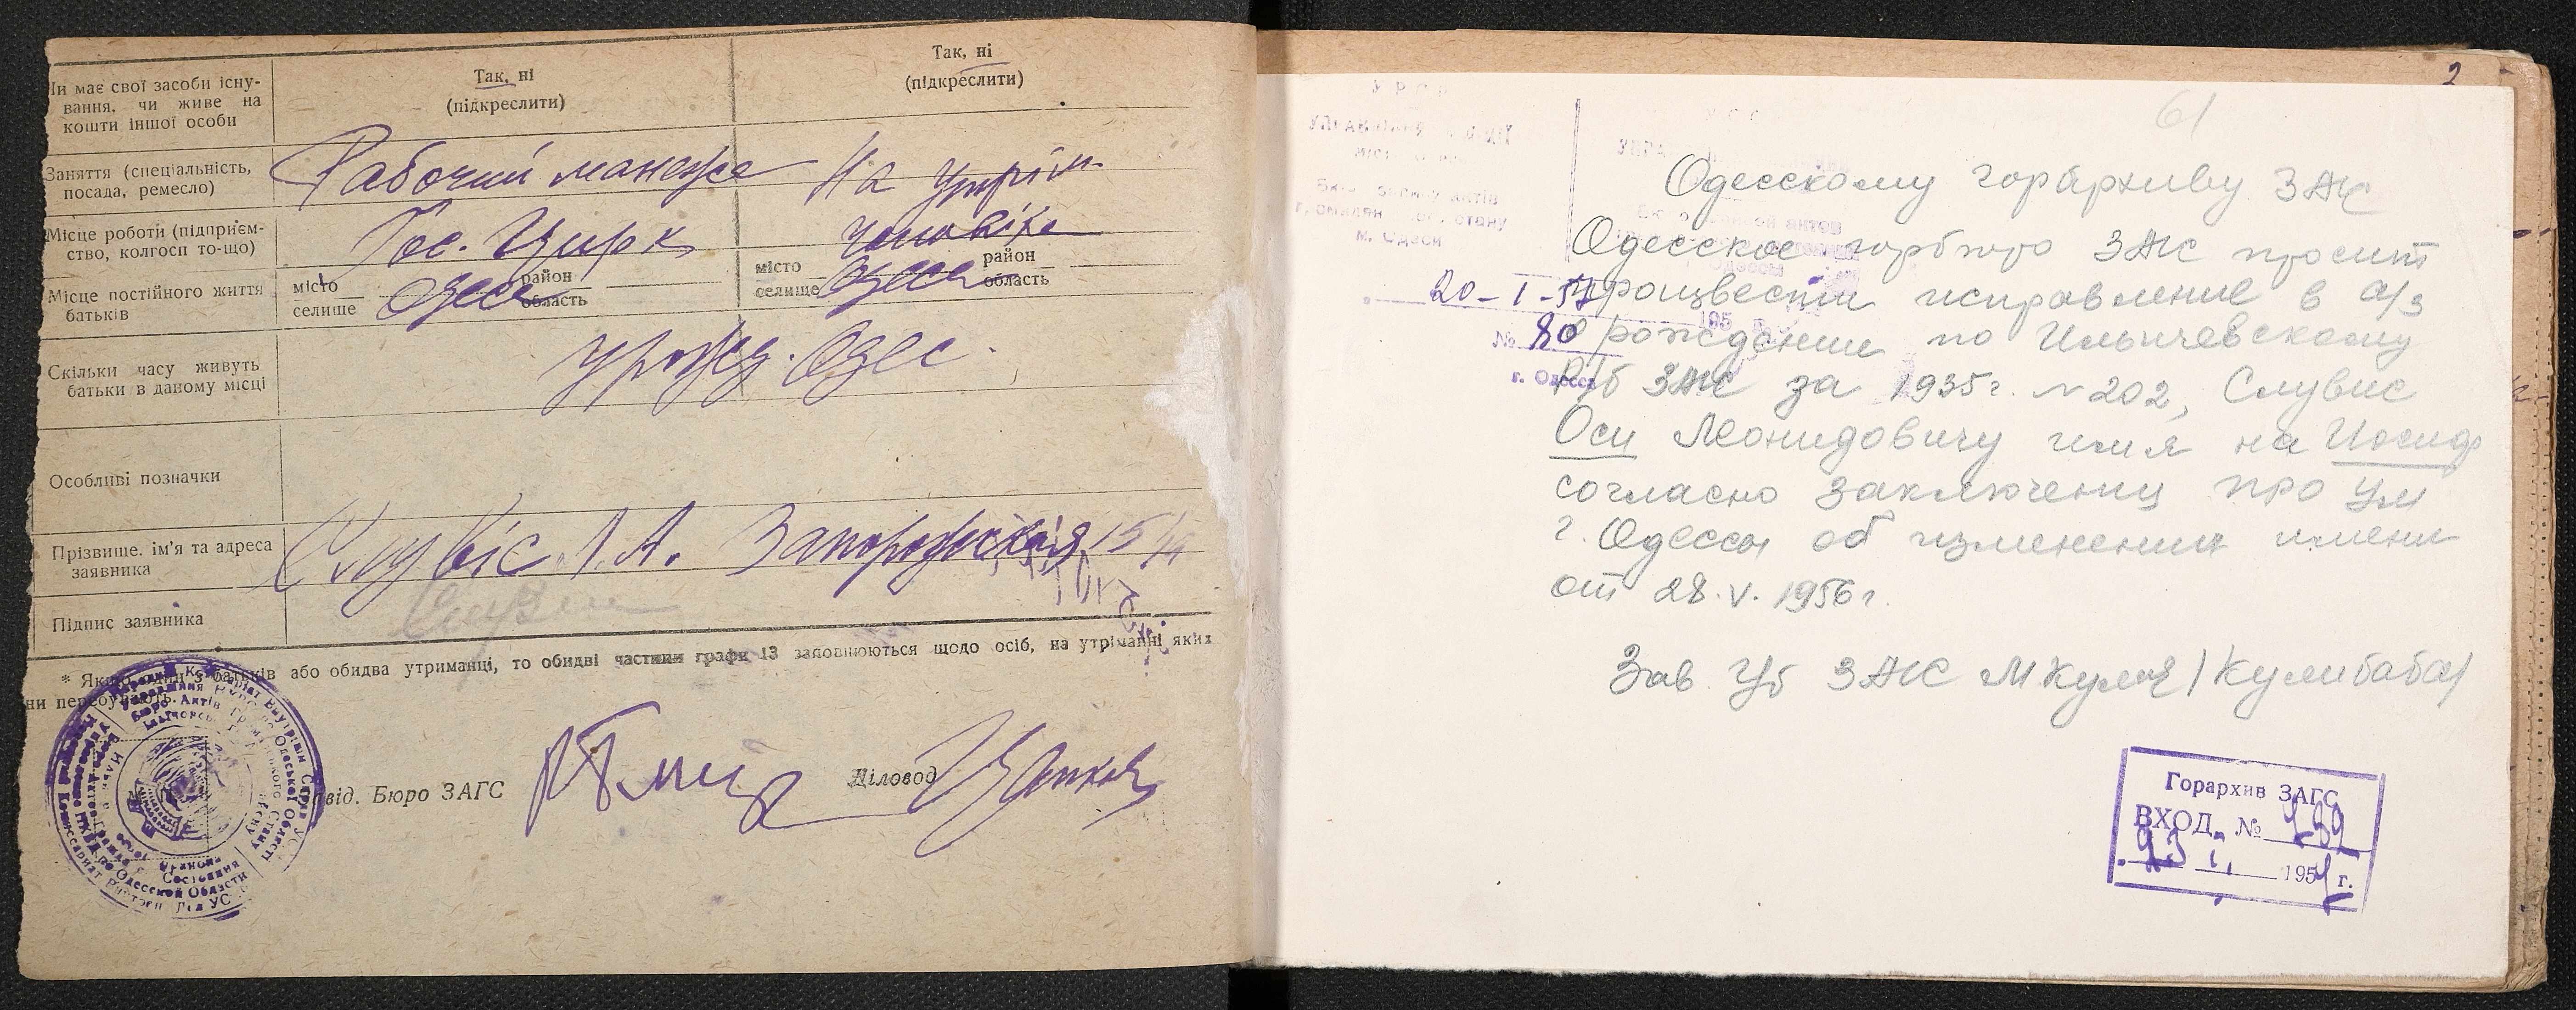 Чи має свої засоби існу-
вання, чи живе на
кошти іншої особи
Так, ні
(підкреслити)
Так, ні
(підкреслити)
Заняття (спеціальність,
посада, ремесло)
Рабочий манежа
На утрім.
Місце роботи (підприєм-
ство, колгосп то-що)
Гос. Цирк
чоловіка
Місце постійного життя
батьків
місто
селище
Одеса
район
область
місто
селище
Одеса
район
область
Скільки часу живуть
батьки в даному місці
урожд. Одес.
Особливі позначки
Прізвище, ім'я та адреса
заявника
Слувіс Л. А. Запорожская 15
Підпис заявника
* Якщо один з батьків або обидва утриманці, то обидві частини графи 13 заповнюються щодо осіб, на утриманні яких
ни перебувають.
Завід. Бюро ЗАГС
Діловод
2
61
УРСР
м. Одеси
20-I-57
195
№ 80
г. Одесса
Одесскому горархиву ЗАГС
Одесское горбюро ЗАГС просит
произвести исправление в а/з
о рождении по Ильичевскому
Р/б ЗАГС за 1935г. №202, Слувис
Оси Леонидовичу имя на Иосиф
согласно заключения про УМ
г. Одессы об изменении имени
от 28.V.1956г.
Зав. Гб ЗАГС М Кулиб /Кулибаба/
Горархив ЗАГС
ВХОД. №
195 г.